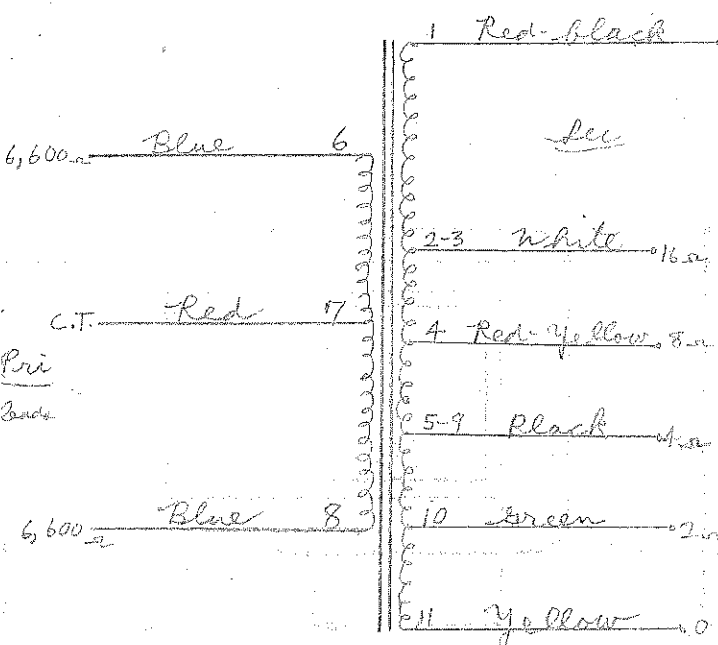 1 Red-black
Sec
6,600Ω Blue 6
2-3 White 16Ω
C.T. Red 7
4 Red-Yellow 8Ω
Pri
Leads
5-9 Black 4Ω
6,600Ω Blue 8
10 Green 2Ω
11 Yellow 0